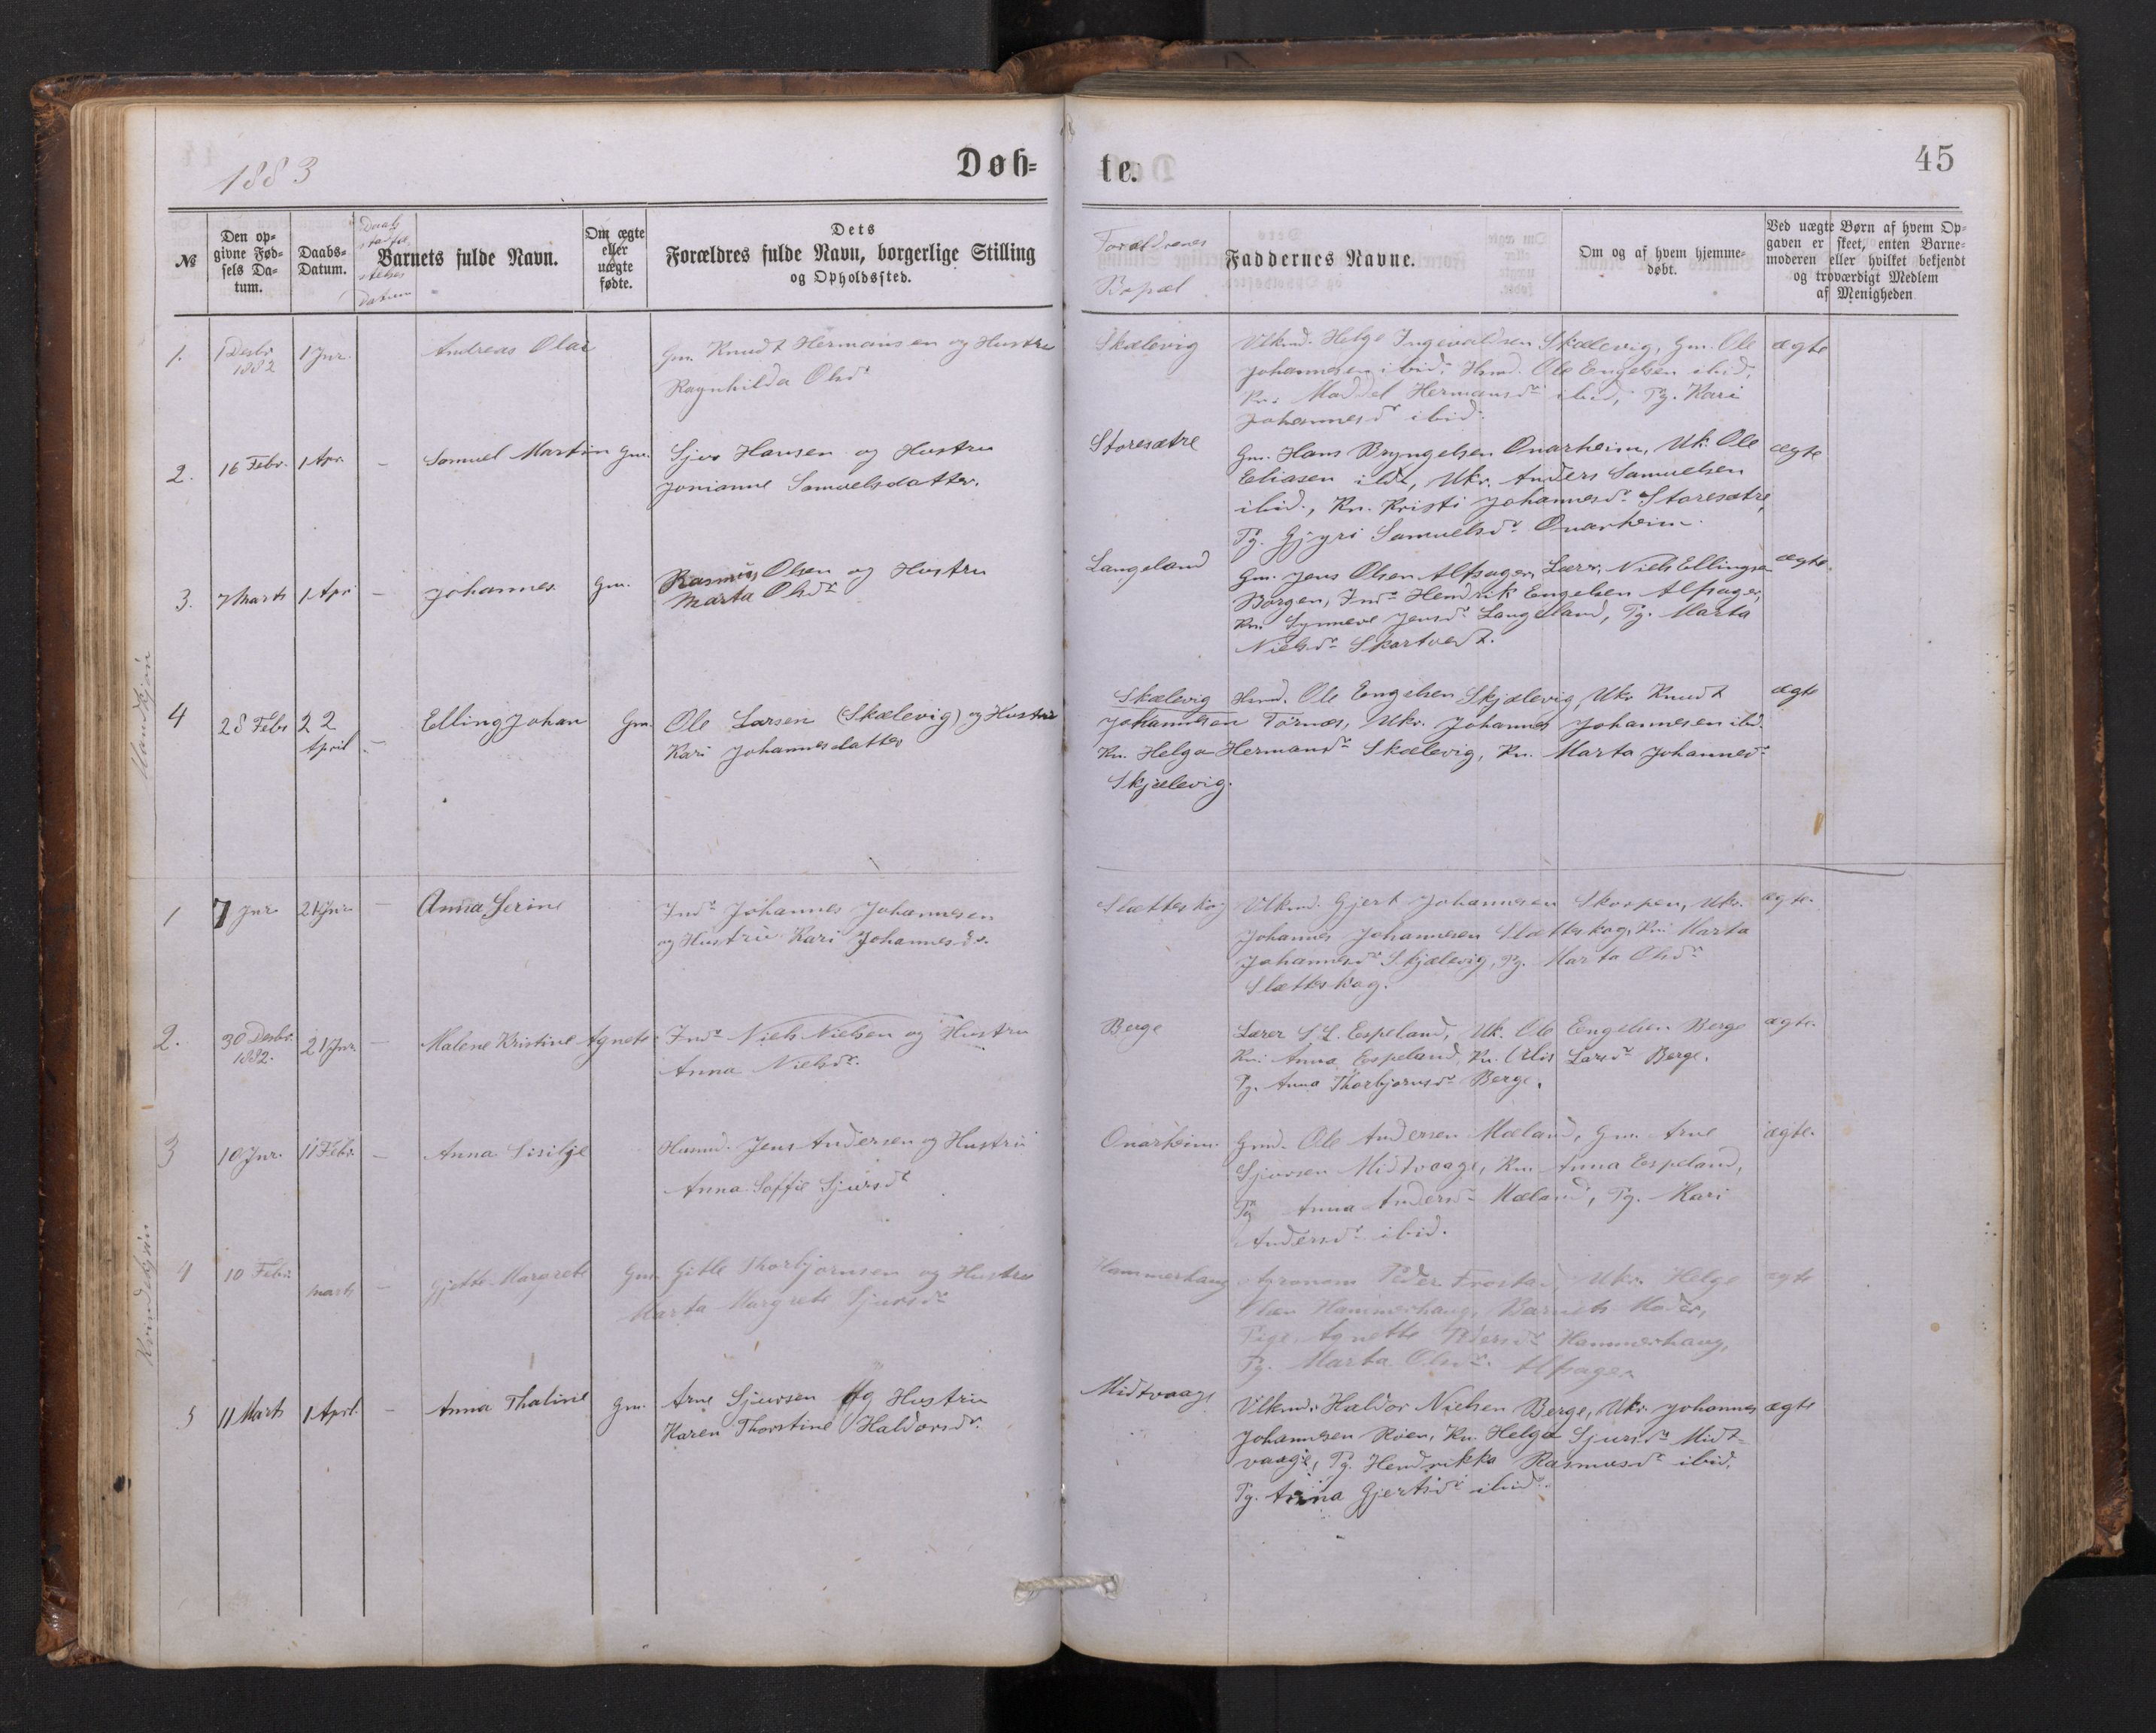 1883
Døb-
te.
45
№
Den op-
givne Fød-
sels Da-
tum.
Daabs-
Datum.
Daab
datum
Barnets fulde Navn.
Om ægte
eller
uægte
fødte.
Dets
Forældres fulde Navn, borgerlige Stilling
og Opholdssted.
Forældrenes
Bopæl
Faddernes Navne.
Om og af hvem hjemme-
døbt.
Ved uægte Børn af hvem Op-
gaven er skeet, enten Barne-
moderen eller hvilket bekjendt
og troværdigt Medlem
af Menigheden
Mandkjøn
1. 1 Desbr. 1 Jnr. Andreas Olai Gm. Knudt Hermansen og Hustru
1882
Ragnhilda Olsdr
Skælevig Ulkmd. Helge Ingevaldsen Skælevig, Gm. Ole ægte
Johannesen ibid, Hmd. Ole Engelsen ibid,
Kn. Maddel Hermansdr ibid, Pg. Kari
Johannesdr ibid.
2. 16 Febr. 1 Apr. - Samuel Martin Gm. Sjur Hansen og Hustru
Jonianne Samuelsdatter.
Storesætre Gm. Hans Bryngelsen Onarheim, Uk. Ole ægte
Eliasen ibd, Ukr. Anders Samuelsen
ibid., Kn. Kristi Johannesdr Storesætre,
Pg. Gjyri Samuelsdr Onarheim.
3. 7 Marts 1 Apr - Johannes Gm. Rasmus Olsen og Hustru
Marta Olsdr
Langeland Gm. Jens Olsen Alfsager, Lærr. Niels Ellingsen ægte
Borgen, Indr Hendrik Engelsen Alfsager,
Kn. Synneve Jensdr Langeland, Pg. Marta
Nielsdr Skartvedt.
4 28 Febr 22 - Elling Johan Gm. Ole Larsen (Skælevig) og Hustru
April
Kari Johannesdatter
Skælevig Hmd. Ole Engelsen Skjælevig, Ukr Knudt ægte
Johannesen Tørnæs, Ukr. Johannes Johannesen ibd.
Kn. Helga Hermansdr Skælevig, Kn. Marta Johannesdr
Skjælevig.
Kvindekjøn
1 7 Jnr 21 Jnr - Anna Serine Indr Johannes Johannesen
og Hustru Kari Johannesdr.
Slætteskog Ulkmd. Gjert Johannesen Skorpen, Ukr. ægte
Johannes Johannesen Slætteskog, Kn. Marta
Johannesdr Skjælevig, Pg. Marta Olsdr
Slætteskog.
2. 30 Desbr. 21 Jnr - Malene Kristine Agnete Indr Niels Nielsen og Hustru
1882.
Anna Nielsdr.
Berge Lærer S. L. Espeland, Uk. Ole Engelsen Berge ægte
Kn. Anna Espeland, Kn. Larsdr Berge,
Pg. Anna Thorbjørnsdr Berge.
3 10 Jnr. 11 Febr. - Anna Sisilje Husmd. Jens Andersen og Hustru
Anna Soffie Sjursdr
Onarheim. Gmd. Ole Andersen Mæland, Gm. Arne ægte.
Sjursen Midtvaage, Kn. Anna Espeland,
Pg Anna Andersdr Mæland, Pg. Kari
Andersdr ibid.
4 10 Febr. Marts - Gjette Margrete Gm. Gitle Thorbjørnsen og Hustru
Marta Margrete Sjursdr
Hammerhaug Agronom Peder Frostad, Ukr. Helge ægte
Hammerhaug, Barnets Moder,
Pige Agnette Pedersdr Hammerhaug,
Pg. Marta Olsdr. Alfsager
5 11 Marts 1 April. - Anna Thaline Gm. Arne Sjursen og Hustru
Karen Thorstine Haldorsdr.
Midtvaage Ulkmd. Haldor Nielsen Berge, Ukr. Johannes ægte
Johannesen Røen, Kn. Helga Sjursdr Midt-
vaage, Pg. Hendrikka Rasmusdr ibid,
Pg. Anna Gjertsdr ibid.